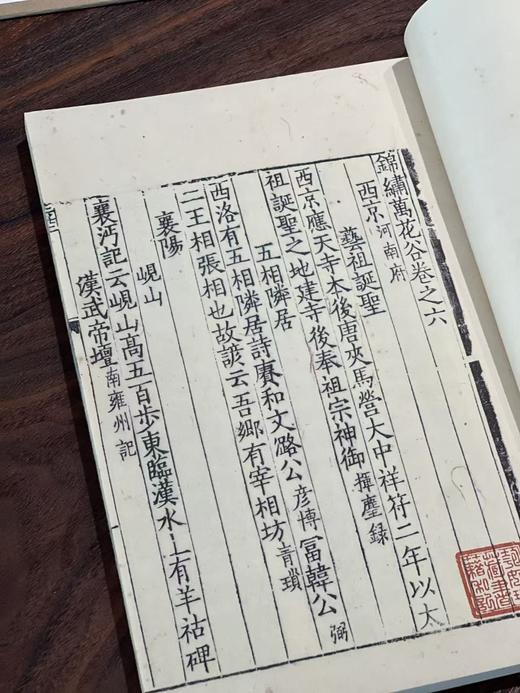 錦繡萬花谷卷之六
西京河南府
藝祖誕聖
西京應天寺本後唐夾馬營大中祥符二年以太
祖誕聖之地建寺後奉祖宗神御揮塵録
五相隣居
西洛有五相隣居詩賡和文潞公彦博冨韓公弼
二王相張相也故諺云吾郷有宰相坊青瑣
襄陽
峴山
襄沔記云峴山髙五百步東臨漢水上有羊祜碑
漢武帝壇南雍州記